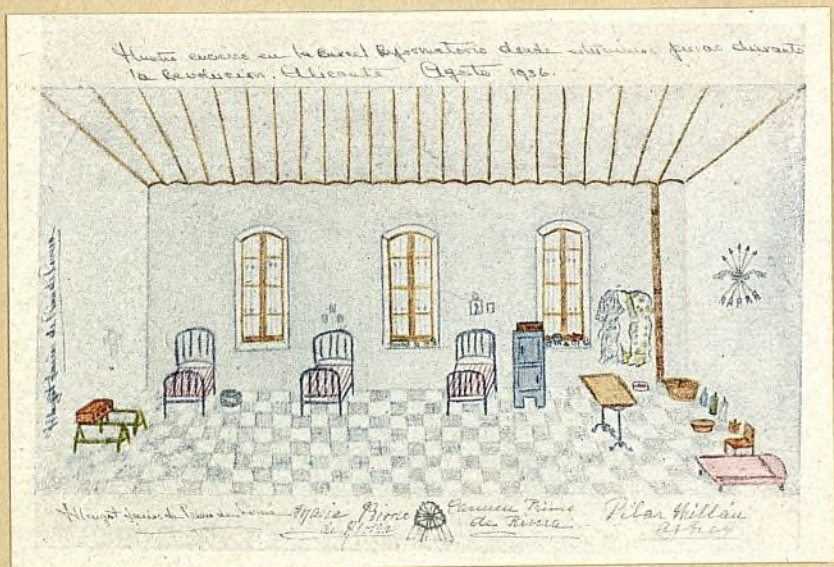 Nuestro encierro en la Carcel Reformatorio donde estuvimos presas durante
la Revolucion. Alicante Agosto 1936.
Margot Larios de Primo de Rivera
Margot Larios de Primo de Rivera Maria Primo
de Rivera
Carmen Primo
de Rivera
Pilar Millán
Astray